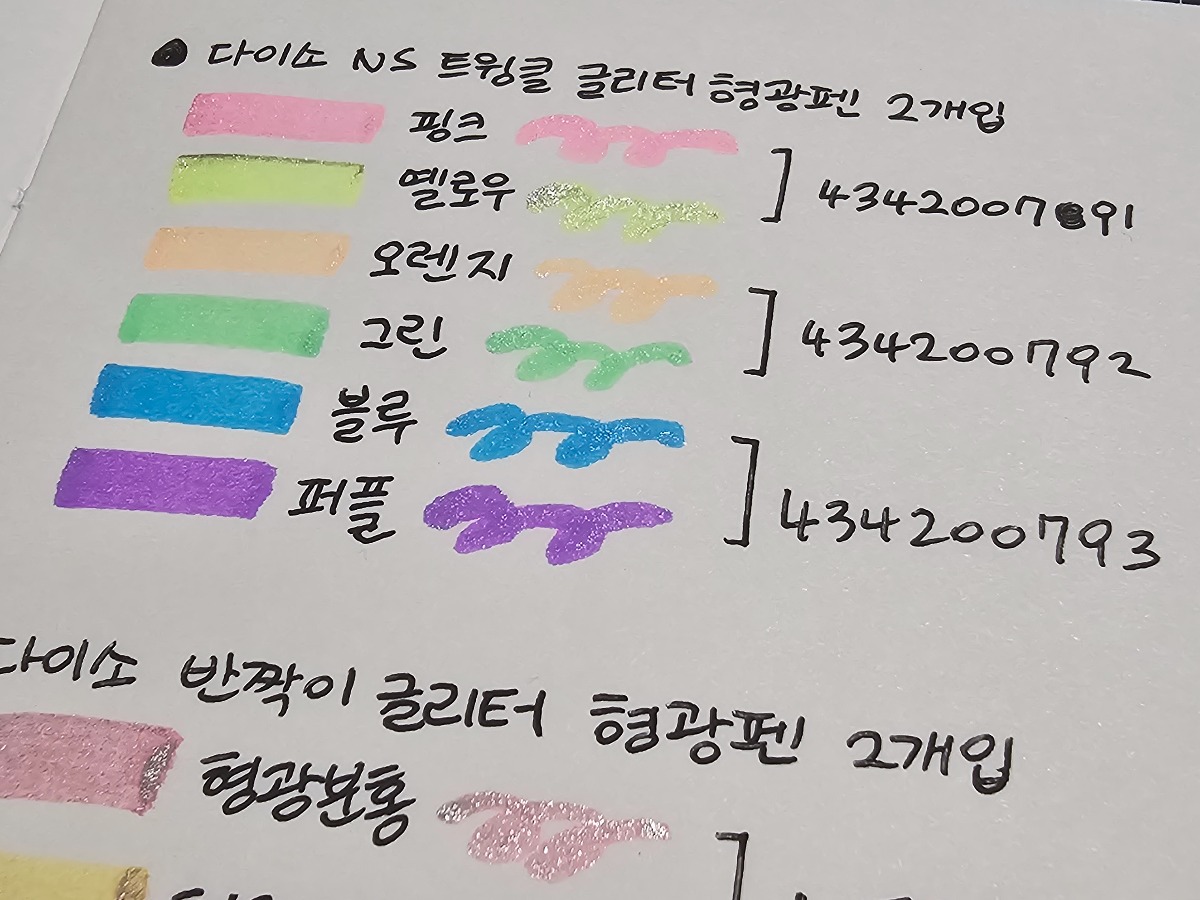 ● 다이소 NS 트윙클 글리터 형광펜 2개입
핑크
옐로우
434200791
오렌지
그린
434200792
블루
퍼플
434200793
다이소 반짝이 글리터 형광펜 2개입
형광분홍